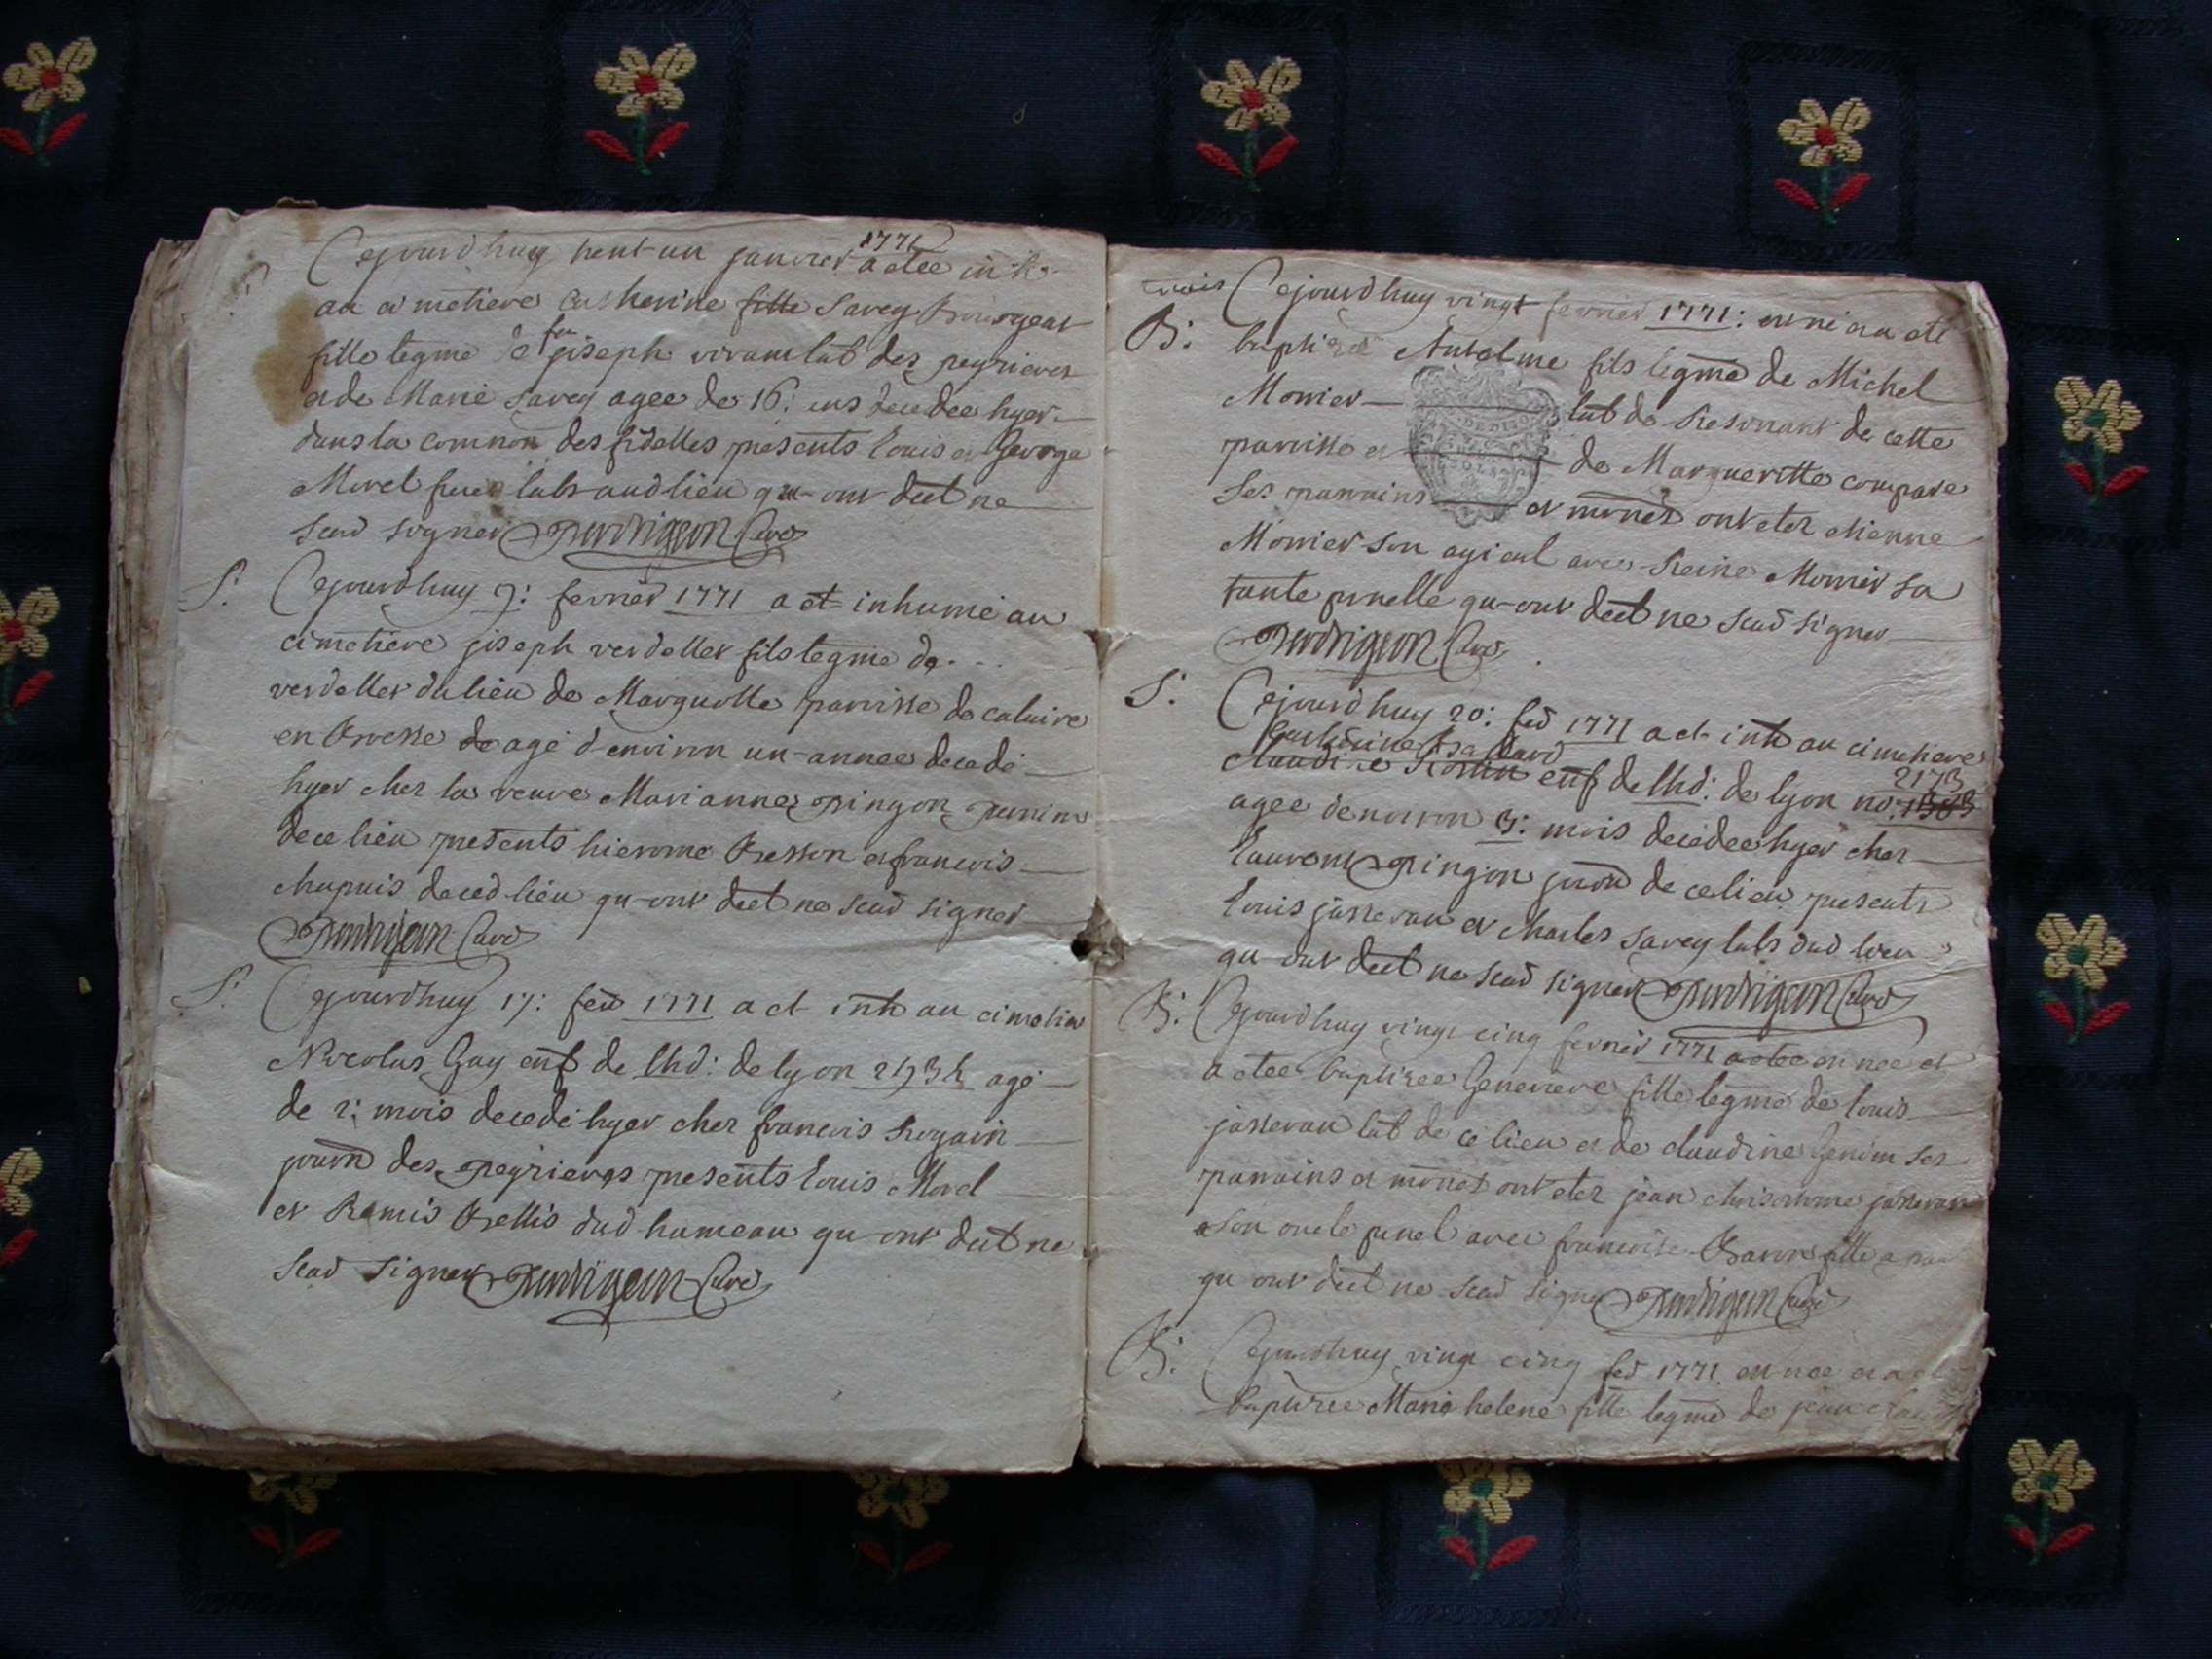 Cejourdhuy trent-un janvier 1771 a etee inh
au cimetiere catherine fille Savey
fille legme de feu joseph vivant lab des peyrieres
et de Marie Savey agee de 16: ans decedee hyer
dans la common des fidelles presents louis et George
Morel freres labs audlieu qu-ont declt ne
scav signer Perdrigeon Curé
S. Cejourdhuy 7: fevrier 1771 a eté inhumé au
cimetiere joseph verdellet fils legme de . . .
verdellet du lieu de Margnolle parrisse de caluire
en Bresse de agé d'environ un-annee decedé
hyer chez la veuve Marianne pingon
de ce lieu presents hierome Besson et francois
chapuis deced lieu qu-ont declt ne scav signer
Perdrigeon Curé
S. Cejourdhuy 17: fev 1771 a et inh au cimetiere
Nicolas Gay enf de lhd: de lyon agé
de 2: mois decedé hyer chez francois
journ des peyrieres presents louis Morel
et Remis Bellis dud hameau qu-ont declt ne
scav signer Perdrigeon Curé
Cejourdhuy vingt fevrier 1771: est né et a eté
B: baptizé Antelme fils legme de Michel
Monier lab de Resonant de cette
parrisse et de Margueritte compare
ses parrains et mrnes ont etez etienne
Monier son ayieul avec Reine Monier sa
tante pnelle qu-ont declt ne scav signer
Perdrigeon Curé
S. Cejourdhuy 20: fev 1771 a et inh au cimetiere
claudine enf de lhd: de lyon no: 2173
agee denviron 3: mois decedee hyer chez
laurent pingon journ de ce lieu presents
louis jasseran et charles savey labs dud lieu
qu-ont declt ne scav signer Perdrigeon Curé
B: Cejourdhuy vingt cinq fevrier 1771 a etee est nee et
a etee baptizee Genevieve fille legme de louis
jasseran lab de ce lieu et de claudine Genin ses
parrains et mrnes ont etez jean chrisostome jasseran
son oncle pnel avec francoise fille
qu ont declt ne scav signer Perdrigeon Curé
B: Cejourdhuy vingt cinq fev 1771 est nee et a
baptizee Marie helene fille legme de jean